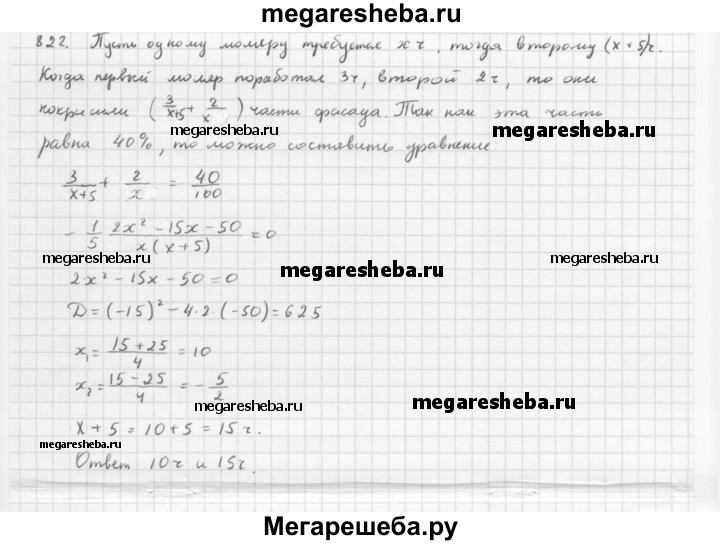 megaresheba.ru
822. Пусть одному моляру требуется x ч, тогда второму (x+5)ч.
Когда первый моляр поработал 3ч, второй 2ч, то они
покрасили ( 3/x+5 + 2/x ) части фасада. Так как эта часть
megaresheba.ru
megaresheba.ru
равна 40%, то можно составить уравнение:
3/x+5 + 2/x = 40/100
- 1/5 2x² - 15x - 50 / x(x+5) = 0
megaresheba.ru
megaresheba.ru
megaresheba.ru
2x² - 15x - 50 = 0
D = (-15)² - 4·2·(-50) = 625
x₁ = 15+25/4 = 10
x₂ = 15-25/4 = - 5/2
megaresheba.ru
megaresheba.ru
x + 5 = 10 + 5 = 15 ч.
megaresheba.ru
Ответ 10ч и 15ч.
Мегарешеба.ру